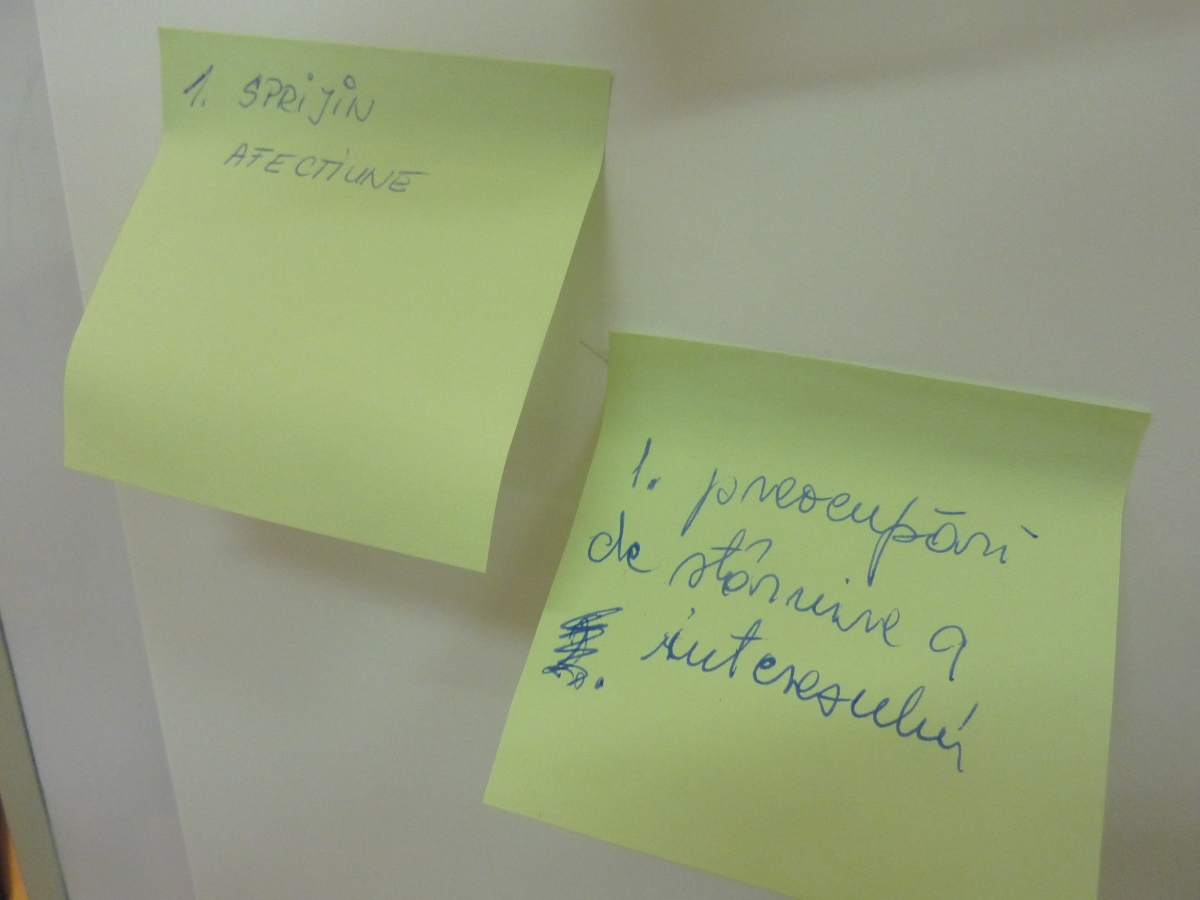 1. SPRIJIN
AFECTIUNE
1. preocupări
de stârnire a
interesului